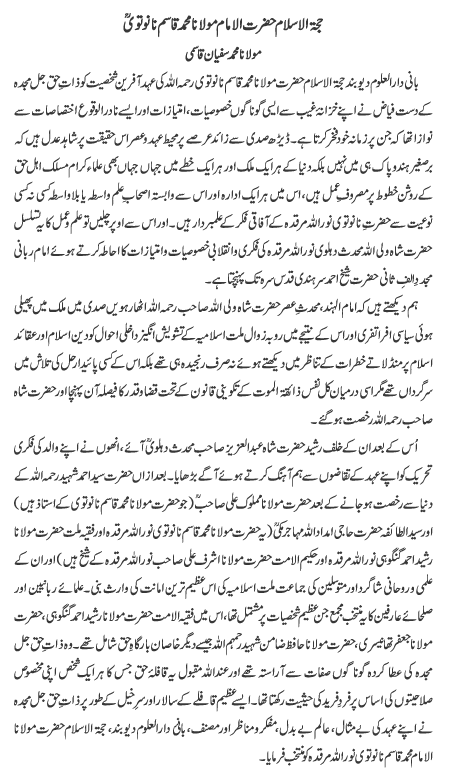 حجۃ الاسلام حضرت الامام مولانا محمد قاسم نانوتویؒ
مولانا محمد سفیان قاسمی
بانی دارالعلوم دیوبند حجۃ الاسلام حضرت مولانا محمد قاسم نانوتوی رحمہ اللہ کی عہد آفرین شخصیت کو ذاتِ حق جل مجدہ
کے دست فیاض نے اپنے خزانۂ غیب سے ایسی گوناگوں خصوصیات، امتیازات اور ایسے نادر الوقوع اختصاصات سے
نوازا تھا کہ جن پر زمانہ خود فخر کرتا ہے۔ ڈیڑھ صدی سے زائد عرصے پر محیط عہد و عصر اس حقیقت پر شاہد عدل ہیں کہ
برصغیر ہند و پاک ہی میں نہیں بلکہ دنیا کے ہر ایک ملک اور ہر ایک خطے میں جہاں جہاں بھی علماء کرام مسلک اہل حق
کے روشن خطوط پر مصروفِ عمل ہیں، اس میں ہر ایک ادارہ اور اس سے وابستہ اصحاب علم واسطہ یا بلا واسطہ کسی نہ کسی
نوعیت سے حضرت نانوتوی نور اللہ مرقدہ کے آفاقی فکر کے علمبردار ہیں۔ اور اس سے اوپر چلیں تو علم و عمل کا یہ تسلسل
حضرت شاہ ولی اللہ محدث دہلوی نور اللہ مرقدہ کی فکری و انقلابی خصوصیات و امتیازات کا احاطہ کرتے ہوئے امام ربانی
مجدد الف ثانی حضرت شیخ احمد سرہندی قدس سرہ تک پہنچتا ہے۔
ہم دیکھتے ہیں کہ امام الہند، محدثِ عصر حضرت شاہ ولی اللہ صاحب رحمہ اللہ اٹھارہویں صدی میں ملک میں پھیلی
ہوئی سیاسی افراتفری اور اس کے نتیجے میں رو بہ زوال ملت اسلامیہ کے تشویش انگیز داخلی احوال کو دین اسلام اور عقائد
اسلام پر منڈلاتے خطرات کے تناظر میں دیکھتے ہوئے نہ صرف رنجیدہ ہی تھے بلکہ اس کے کسی پائیدار حل کی تلاش میں
سرگرداں تھے مگر اسی درمیان کل نفس ذائقۃ الموت کے تکوینی قانون کے تحت قضا و قدر کا فیصلہ آن پہنچا اور حضرت شاہ
صاحب رحمہ اللہ رخصت ہو گئے۔
اُس کے بعد ان کے خلف رشید حضرت شاہ عبدالعزیز صاحب محدث دہلویؒ آئے، انھوں نے اپنے والد کی فکری
تحریک کو اپنے عہد کے تقاضوں سے ہم آہنگ کرتے ہوئے آگے بڑھایا۔ بعد ازاں حضرت سید احمد شہید رحمہ اللہ کے
دنیا سے رخصت ہو جانے کے بعد حضرت مولانا مملوک علی صاحبؒ (جو حضرت مولانا محمد قاسم نانوتوی کے استاذ ہیں)
اور سید الطائفہ حضرت حاجی امداد اللہ مہاجر مکیؒ (یہ حضرت مولانا محمد قاسم نانوتوی نور اللہ مرقدہ اور فقیہ ملت حضرت مولانا
رشید احمد گنگوہی نور اللہ مرقدہ اور حکیم الامت حضرت مولانا اشرف علی صاحب نور اللہ مرقدہ کے شیخ ہیں) اور ان کے
علمی و روحانی شاگرد اور متوسلین کی جماعت ملت اسلامیہ کی اس عظیم ترین امانت کی وارث بنی۔ علمائے ربانیین اور
صلحائے عارفین کا یہ منتخب مجمع جن عظیم شخصیات پر مشتمل تھا، اس میں فقیہ الامت حضرت مولانا رشید احمد گنگوہی، حضرت
مولانا جعفر تھانیسری، حضرت مولانا حافظ ضامن شہید رحمہم اللہ جیسے دیگر خاصان بارگاہِ حق شامل تھے۔ وہ ذاتِ حق جل
مجدہ کی عطا کردہ گوناگوں صفات سے آراستہ تھے اور عند اللہ مقبول یہ قافلۂ حق جس کا ہر ایک شخص اپنی مخصوص
صلاحیتوں کی اساس پر فردِ فرید کی حیثیت رکھتا تھا۔ ایسے عظیم قافلے کے سالار اور سرخیل کے طور پر ذاتِ حق جل مجدہ
نے اپنے عہد کی بے مثال، عالم بے بدل، مفکر و مناظر اور مصنف، بانی دارالعلوم دیوبند، حجۃ الاسلام حضرت مولانا
الامام محمد قاسم نانوتوی نور اللہ مرقدہ کو منتخب فرمایا۔